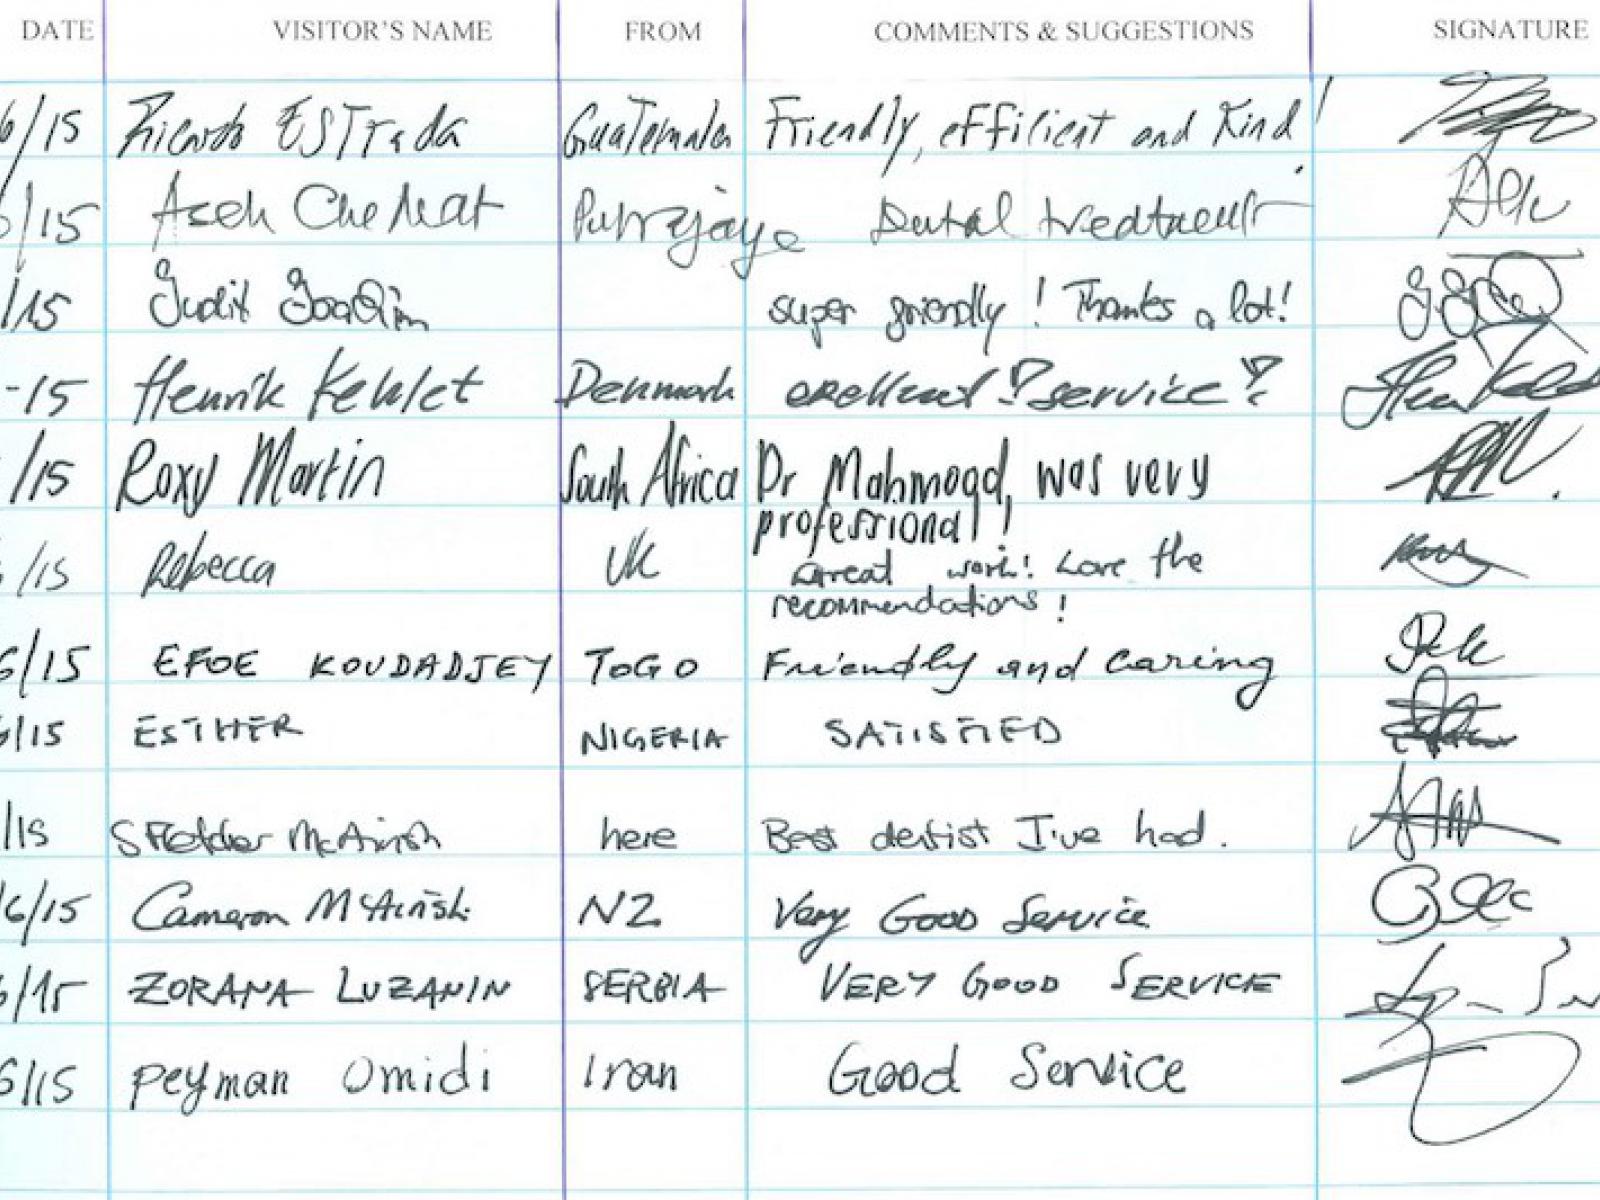 DATE VISITOR'S NAME FROM COMMENTS & SUGGESTIONS SIGNATURE
6/15 Ricardo ESTrada Guatemala Friendly, efficient and Kind!
/15 Putrajaya Dental treatment
/15 Judit Joaqim super friendly! Thanks a lot!
-15 Henrik Kehlet Denmark excellent! service!
/15 Roxy Martin South Africa Dr Mahmood, was very
professional!
/15 Rebecca UK Great work! Love the
recommendations!
6/15 EFOE KOUDADJEY TOGO Friendly and caring
6/15 ESTHER NIGERIA SATISFIED
/15 S Fletcher McAinsh here Best dentist I've had.
/6/15 Cameron McAinsh NZ Very Good Service
6/15 ZORANA LUZANIN SERBIA VERY GOOD SERVICE
6/15 Peyman Omidi Iran Good Service